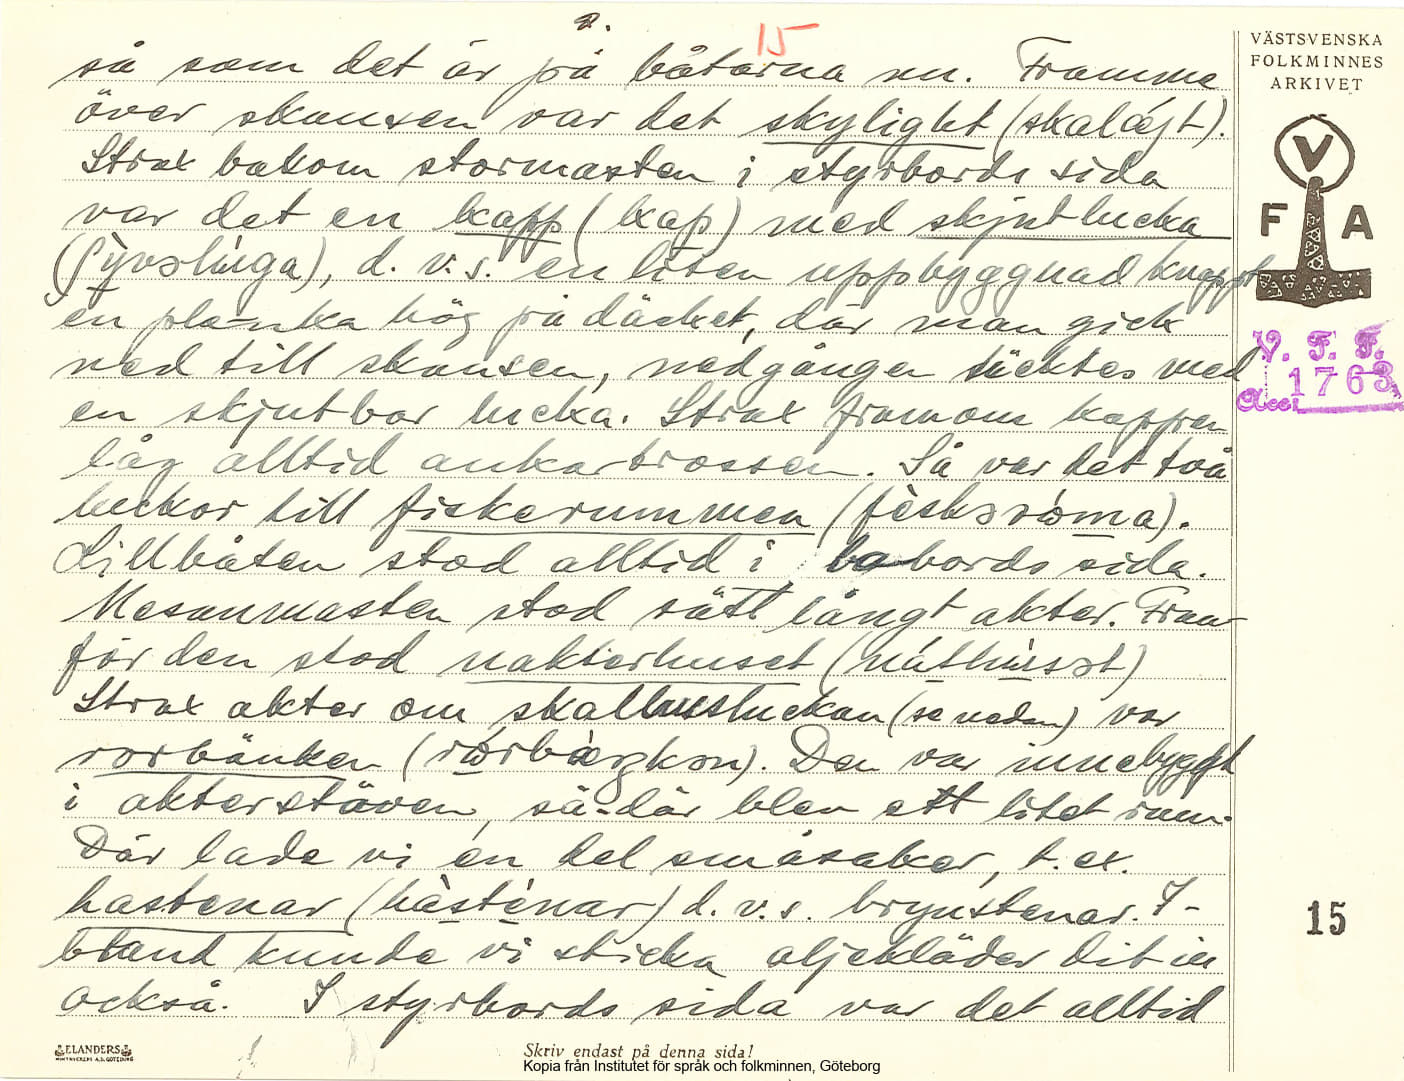 2.
15
VÄSTSVENSKA
FOLKMINNES
ARKIVET
V
F A
V. F. F.
1763
Acc:
så som det är på båtarna nu. Framme
över skansen var det skylight (skalájt).
Strax bakom stormasten i styrbords sida
var det en kapp (kap) med skjutlucka
d. v. s. en liten uppbyggnad knappt
en planka hög på däcket, där man gick
ned till skansen, nedgången täcktes med
en skjutbar lucka. Strax framom kappen
låg alltid ankartrossen. Så var det två
luckor till fiskerummen
Lillbåten stod alltid i babords sida.
Mesanmasten stod rätt långt akter. Fram-
för den stod nakterhuset
Strax akter om skallhusluckan (se nedan) var
rorbänken Den var innebyggt
i akterstäven, så där blev ett litet rum.
Där lade vi en del småsaker, t. ex.
hastenar (hàsténar) d. v. s. brynstenar. I-
bland kunde vi sticka oljekläder dit in
också. I styrbords sida var det alltid
15
ELANDERS
Skriv endast på denna sida!
Kopia från Institutet för språk och folkminnen, Göteborg